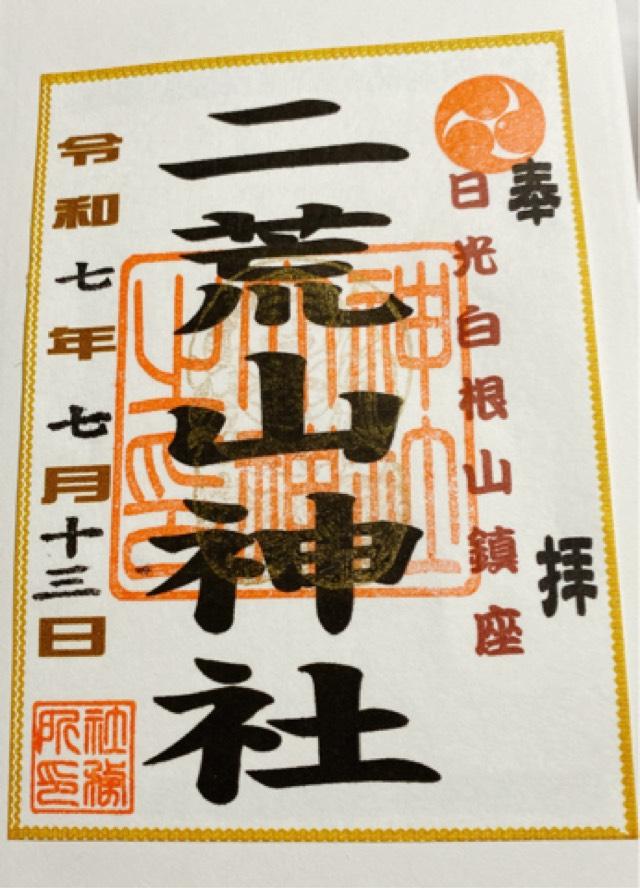 奉拝
日光白根山鎮座
二荒山神社
令和七年七月十三日
社務所印